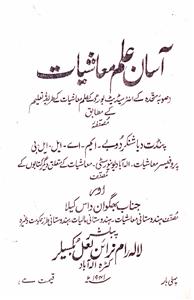 آسان علم معاشیات
صوبہ متحدہ کے انٹرمیڈیٹ بورڈ کے علم معاشیات کے طریقۂ تعلیم
کے مطابق
مصنفہ
پنڈت دیا شنکر دوبے۔ ایم۔ اے۔ ایل۔ ایل۔ بی
پروفیسر معاشیات۔ الہ آباد یونیورسٹی۔ معاشیات کے متعلق دیگر کتابوں کے
مصنف
اور
جناب بھگوان داس کیلا
مصنف ہندوستانی معاشیات۔ ہندوستانی مالیات
پبلشر
لالہ رام نرائن لعل بکسیلر
کٹرہ الہ آباد
۱۹۴۱ء
پہلی بار
قیمت